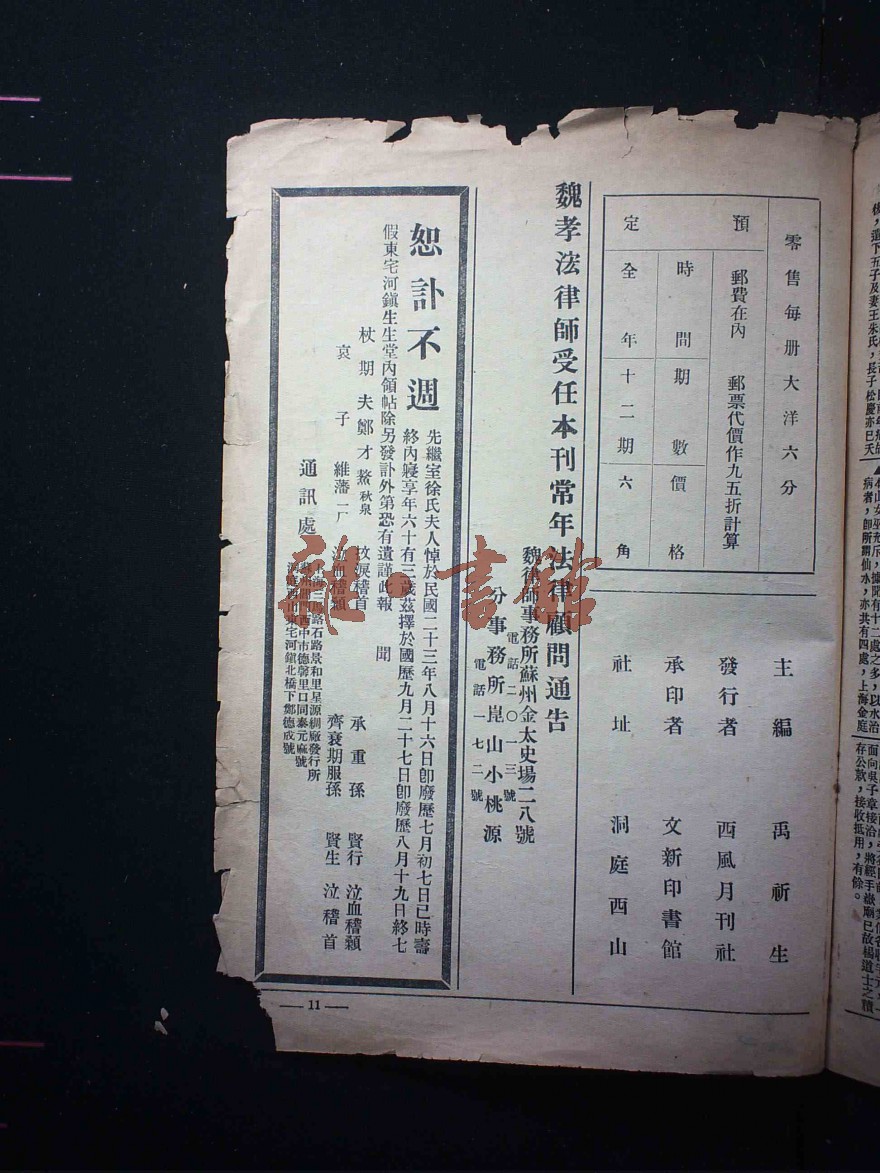 零售每册大洋六分
預定
郵費在內　郵票代價作九五折計算
時間　期數　價格
全年　十二期　六角
主編　禹祈生
發行者　西風月刊社
承印者　文新印書館
社址　洞庭西山
魏孝法律師受任本刊常年法律顧問通告
魏律師事務所蘇州金太史場二八號
電話二〇一三號
分事務所崑山小桃源
電話一七二號
恕訃不週
先繼室徐氏夫人悼於民國二十三年八月十六日卽廢歷七月初七日巳時壽
終內寢享年六十有三歲茲擇於國歷九月二十七日卽廢歷八月十九日終七
假東宅河鎮生生堂內領帖除另發訃外第恐有遺謹此報
聞
杖期夫鄭才鰲秋泉　抆淚稽首
哀子　維藩一厂　泣血稽顙
承重孫　賢行　泣血稽顙
齊衰期服孫　賢生　泣稽首
通訊處
上海三馬路石路景和里星源綢廠發行所
門西中市德馨里口同泰元麻號
西山東宅河鎮北橋下鄭德成號
11
雜·書館